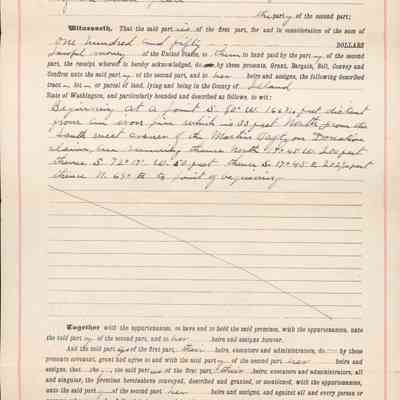 the party of the second part;
Witnesseth, That the said parties of the first part, for and in consideration of the sum of
One hundred and fifty DOLLARS
lawful money of the United States, to them in hand paid by the party of the second
part, the receipt whereof is hereby acknowledged, do by these presents, Grant, Bargain, Sell, Convey and
Confirm unto the said party of the second part, and to her heirs and assigns, the following described
tract lot or parcel of land, lying and being in the County of Island
State of Washington, and particularly bounded and described as follows, to wit:
Beginning at a point S. 80° W. feet distant
from an iron pin which is 33 feet North from the
South west corner of the Martin Taftyon Donation
claim, and running thence North W. 200 feet
thence S. 72° W. 50 feet thence S. 17°45 E. feet
thence N. 69° E to point of beginning
Together with the appurtenances, to have and to hold the said premises, with the appurtenances, unto
the said party of the second part, and to her heirs and assigns forever.
And the said parties of the first part, their heirs, executors and administrators, do by these
presents covenant, grant and agree to and with the said party of the second part, her heirs and
assigns, that the said parties of the first part, their heirs, executors and administrators, all
and singular, the premises hereinabove conveyed, described and granted, or mentioned, with the appurtenances,
unto the said party of the second part, her heirs and assigns, and against all and every person or